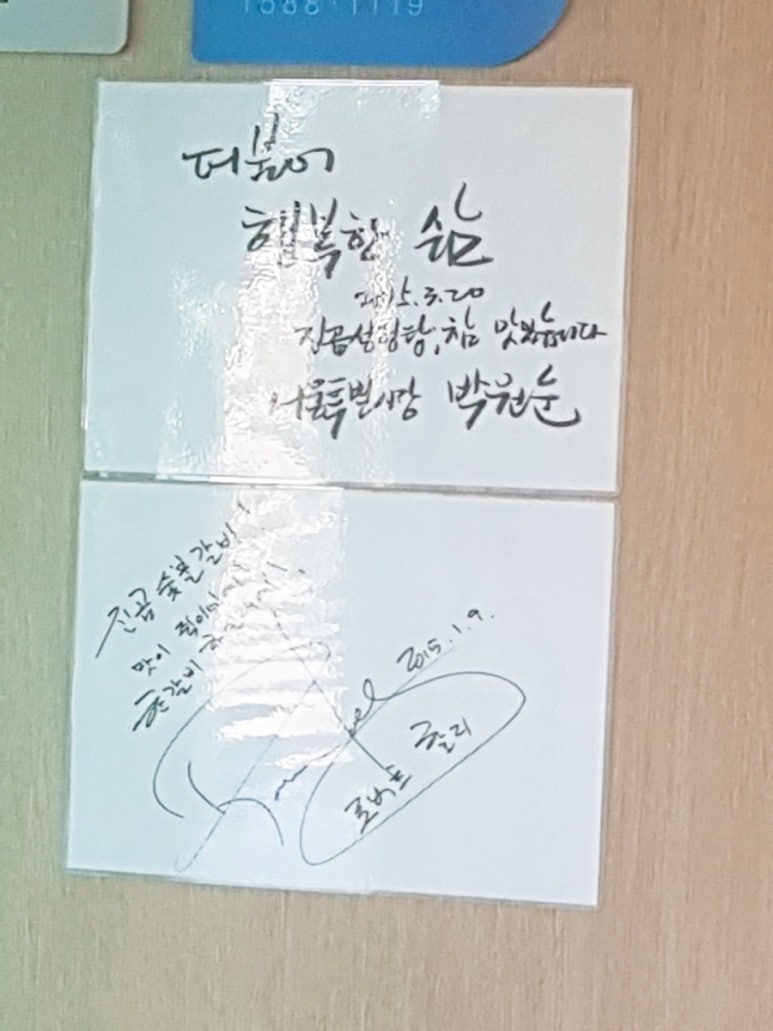 1688-1119
더불어
행복한 삶
2015.3.20
진곰설렁탕, 참 맛있습니다
서울특별시장 박원순
진곰숯불갈비!
맛이
2015.1.9.
로버트 할리